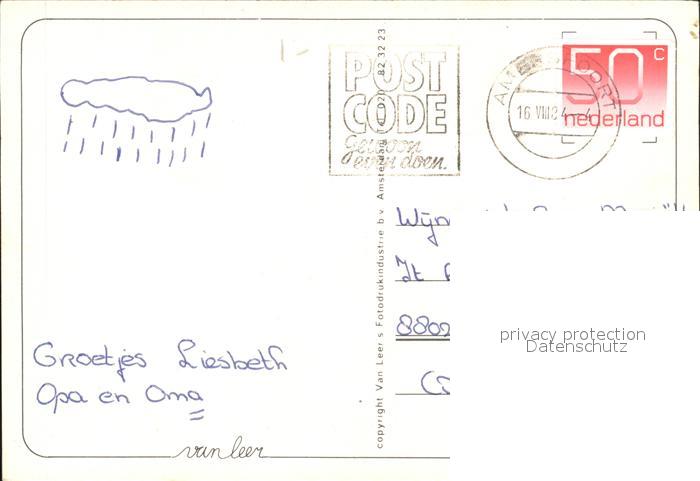 POST
CODE
Gewoon
even doen.
AMERSFOORT
16 VIII 84
50 c
nederland
Wijn
It
880
privacy protection
Datenschutz
Groetjes Liesbeth
Opa en Oma
van Leer
copyright Van Leer's Fotodrukindustrie b.v. Amsterdam Tel. 020 - 82 32 23